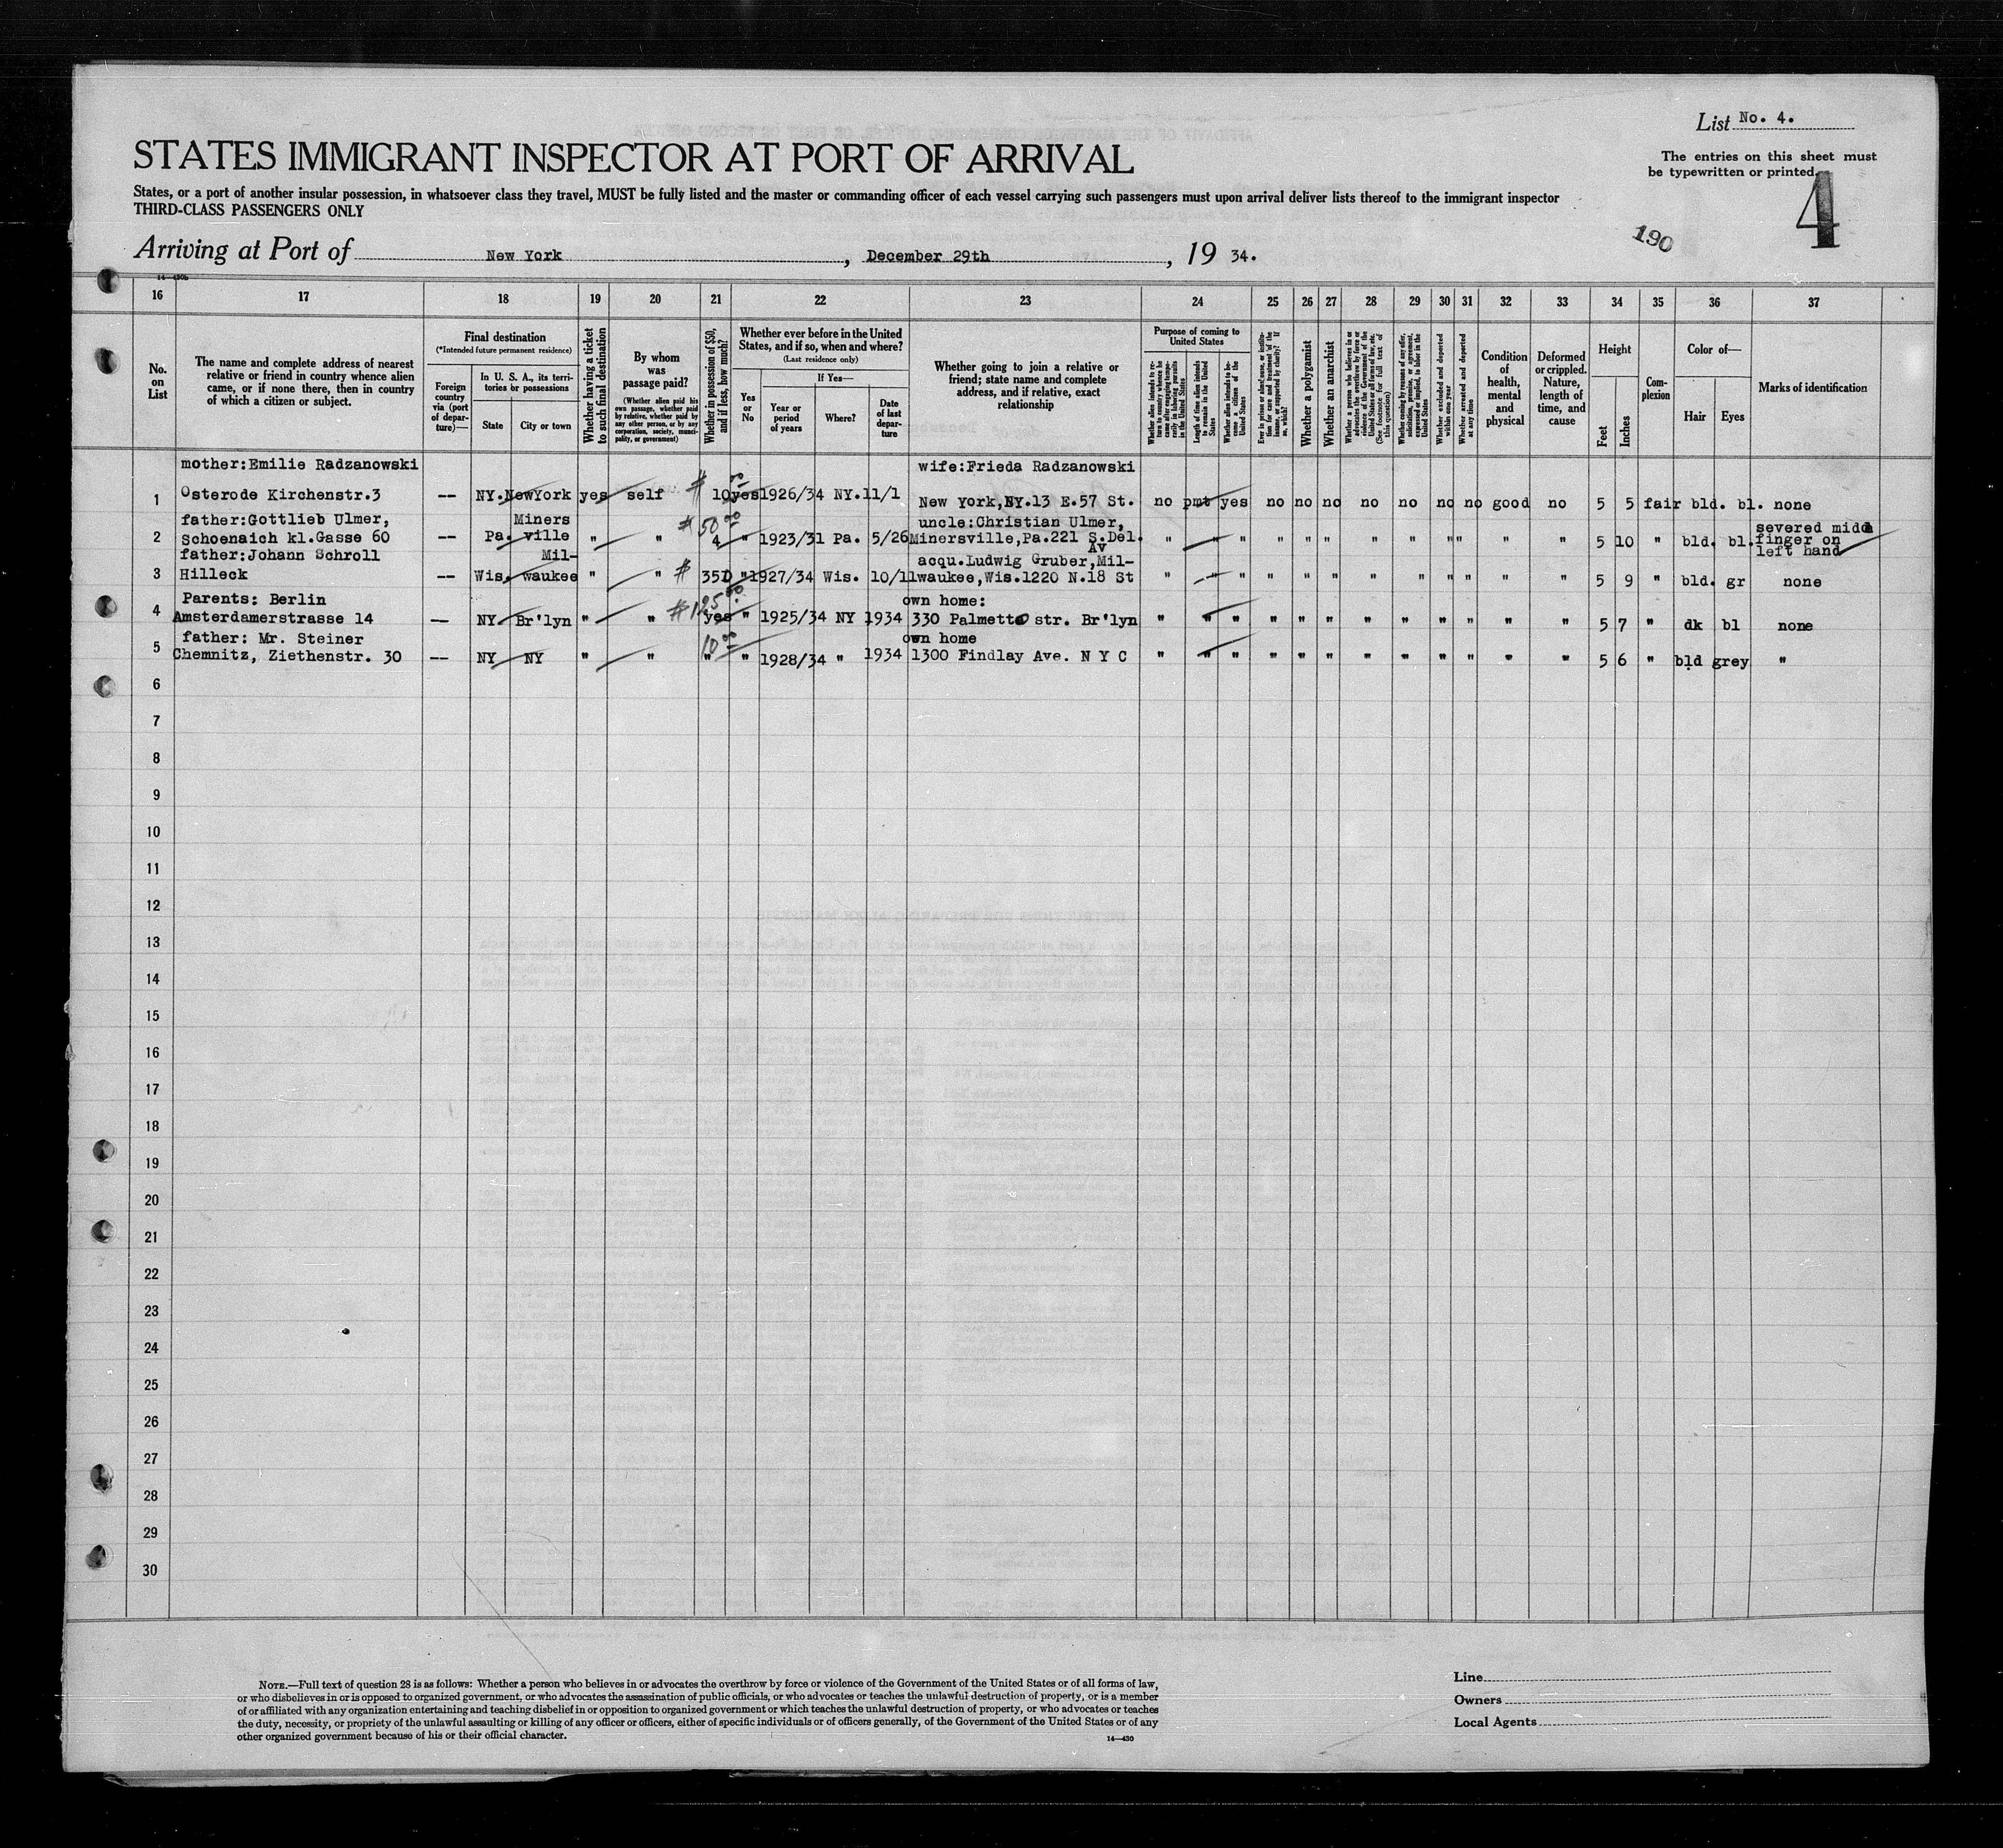 List No. 4.
STATES IMMIGRANT INSPECTOR AT PORT OF ARRIVAL
The entries on this sheet must
be typewritten or printed.
States, or a port of another insular possession, in whatsoever class they travel, MUST be fully listed and the master or commanding officer of each vessel carrying such passengers must upon arrival deliver lists thereof to the immigrant inspector
THIRD-CLASS PASSENGERS ONLY
4
190
Arriving at Port of New York, December 29th, 19 34.
14—430b
16 17 18 19 20 21 22 23 24 25 26 27 28 29 30 31 32 33 34 35 36 37
No. on List
The name and complete address of nearest
relative or friend in country whence alien
came, or if none there, then in country
of which a citizen or subject.
Final destination
(*Intended future permanent residence)
Foreign country via (port of departure)—
In U. S. A., its territories or possessions
State
City or town
Whether having a ticket to such final destination
By whom was passage paid?
(Whether alien paid his own passage, whether paid by relative, whether paid by any other person, or by any corporation, society, municipality, or government)
Whether in possession of $50, and if less, how much?
Whether ever before in the United States, and if so, when and where?
(Last residence only)
Yes or No
If Yes—
Year or period of years
Where?
Date of last departure
Whether going to join a relative or
friend; state name and complete
address, and if relative, exact
relationship
Purpose of coming to United States
Whether alien intends to return to country whence he came after engaging temporarily in laboring pursuits in the United States
Length of time alien intends to remain in the United States
Whether alien intends to become a citizen of the United States
Ever in prison or almshouse, or institution for care and treatment of the insane, or supported by charity? If so, which?
Whether a polygamist
Whether an anarchist
Whether a person who believes in or advocates the overthrow by force or violence of the Government of the United States or all forms of law, etc. (See footnote for full text of this question)
Whether coming by reason of any offer, solicitation, promise, or agreement, expressed or implied, to labor in the United States
Whether excluded and deported within one year
Whether arrested and deported at any time
Condition of health, mental and physical
Deformed or crippled. Nature, length of time, and cause
Height
Feet
Inches
Complexion
Color of—
Hair
Eyes
Marks of identification
mother:Emilie Radzanowski wife:Frieda Radzanowski
1 Osterode Kirchenstr.3 -- NY. NewYork yes self # 10 00 yes 1926/34 NY. 11/1 New York,NY.13 E.57 St. no pmt yes no no no no no no no good no 5 5 fair bld. bl. none
father:Gottlieb Ulmer, Miners #50 00 uncle:Christian Ulmer, severed midd
2 schoenaich kl.Gasse 60 -- Pa. ville " " 4 " 1923/31 Pa. 5/26 Minersville,Pa.221 S.Del. Av " " " " " " " " " " " 5 10 " bld. bl. finger on
left hand
father:Johann Schroll Mil- acqu.Ludwig Gruber,Mil-
3 Hilleck -- Wis. waukee " " # 350 " 1927/34 Wis. 10/11 waukee,Wis.1220 N.18 St " " " " " " " " " " " " 5 9 " bld. gr none
Parents: Berlin #125 00 own home:
4 Amsterdamerstrasse 14 -- NY Br'lyn " " yes " 1925/34 NY 1934 330 Palmetto str. Br'lyn " " " " " " " " " " " " 5 7 " dk bl none
father: Mr. Steiner 10 00 own home
5 Chemnitz, Ziethenstr. 30 -- NY NY " " " " 1928/34 " 1934 1300 Findlay Ave. N Y C " " " " " " " " " " " " 5 6 " bld grey "
6
7
8
9
10
11
12
13
14
15
16
17
18
19
20
21
22
23
24
25
26
27
28
29
30
NOTE.—Full text of question 28 is as follows: Whether a person who believes in or advocates the overthrow by force or violence of the Government of the United States or of all forms of law,
or who disbelieves in or is opposed to organized government, or who advocates the assassination of public officials, or who advocates or teaches the unlawful destruction of property, or is a member
of or affiliated with any organization entertaining and teaching disbelief in or opposition to organized government or which teaches the unlawful destruction of property, or who advocates or teaches
the duty, necessity, or propriety of the unlawful assaulting or killing of any officer or officers, either of specific individuals or of officers generally, of the Government of the United States or of any
other organized government because of his or their official character.
14—430
Line
Owners
Local Agents